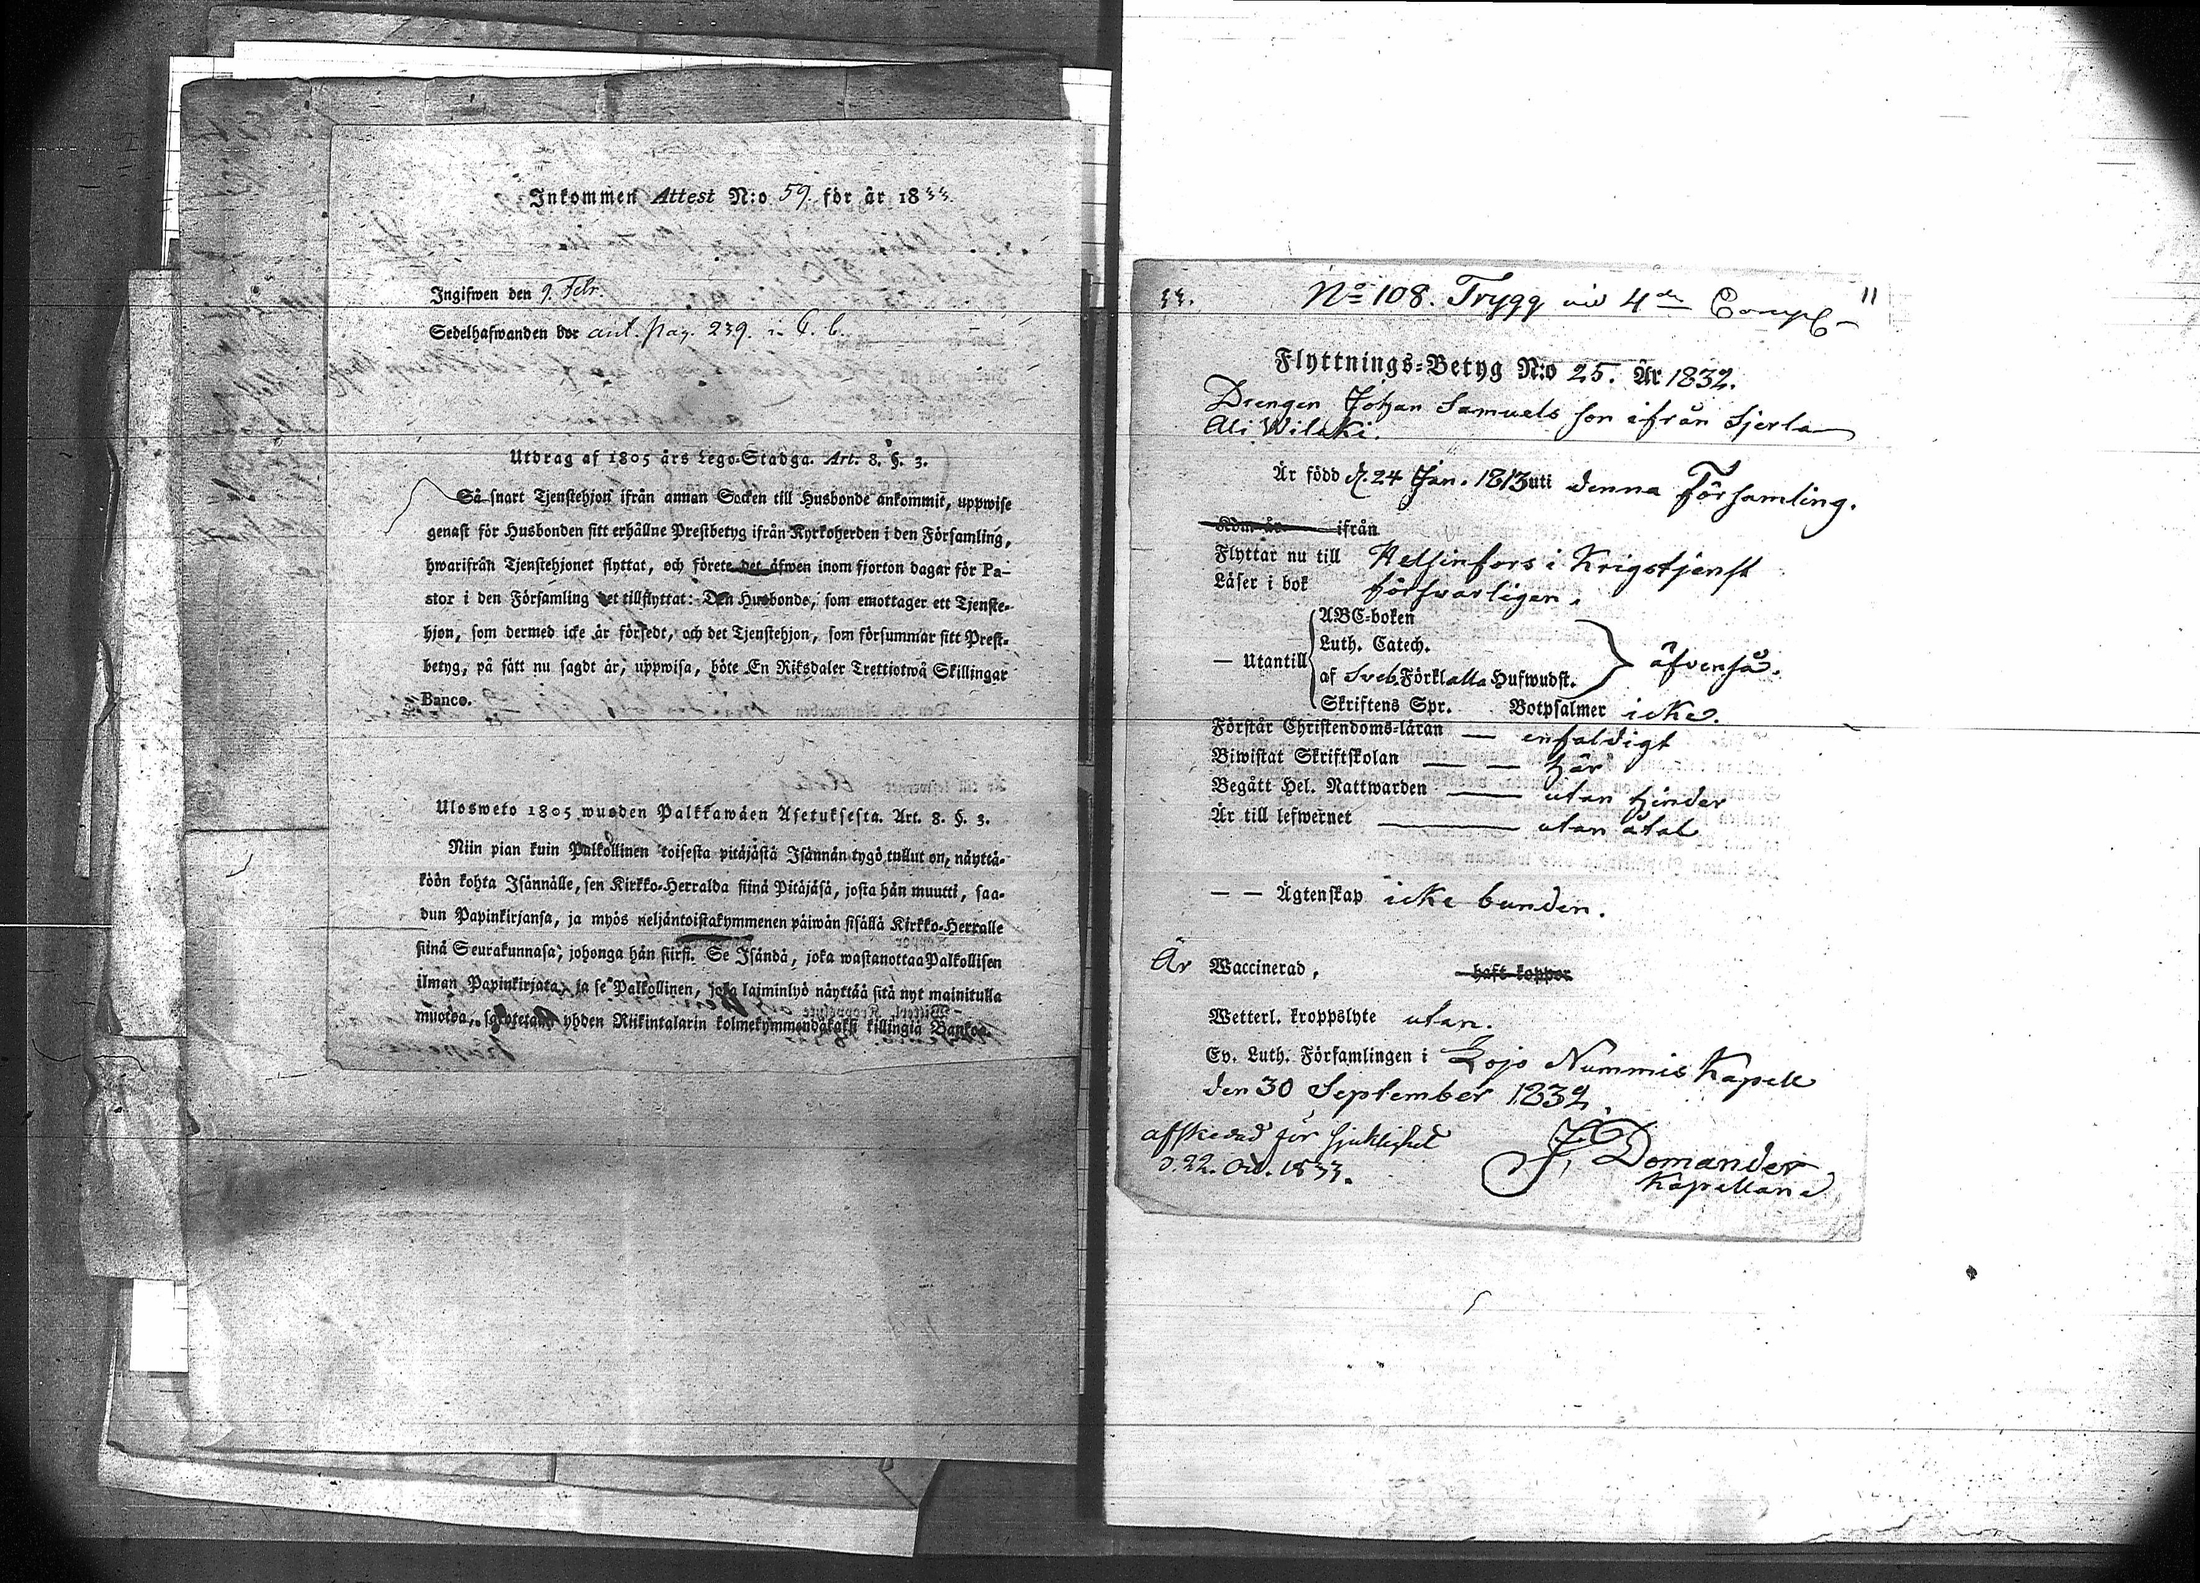 Inkommen Attest N:o 59. för år 1833.
Ingifwen den 9. Febr.
Sedelhafwanden bor ant. pag. 239. i C. b.
Utdrag af 1805 års Lego-Stadga. Art. 8. §. 3.
Så snart Tjenstehjon ifrån annan Socken till Husbonde ankommit, uppwise
genast för Husbonden sitt erhållne Prestbetyg ifrån Kyrkoherden i den Församling,
hwarifrån Tjenstehjonet flyttat, och förete det äfwen inom fjorton dagar för Pa-
stor i den Församling det tillflyttat: Den Husbonde, som emottager ett Tjenste-
hjon, som dermed icke är försedt, och det Tjenstehjon, som försummar sitt Prest-
betyg, på sätt nu sagdt är, uppwisa, böte En Riksdaler Trettiotwå Skillingar
Banco.
Ulosweto 1805 wuoden Palkkawäen Asetuksesta. Art. 8. §. 3.
Niin pian kuin Palkollinen toisesta pitäjästä Isännän tygö tullut on, näyttä-
köön kohta Isännälle, sen Kirkko-Herralda siinä Pitäjäsä, josta hän muutti, saa-
dun Papinkirjansa, ja myös neljäntoistakymmenen päiwän sisällä Kirkko-Herralle
siinä Seurakunnasa, johonga hän siirsi. Se Isändä, joka wastanottaa Palkollisen
ilman Papinkirjata, ja se Palkollinen, joka laiminlyö näyttää sitä nyt mainitulla
muotoa, yhden Riikintalarin kolmekymmendäkaksi killingiä Bankoa.
33.
No 108. Trygg vid 4de Comp. 11
Flyttnings-Betyg N:o 25. År 1832.
Drengen Johan Samuels son ifrån Sjerla
Ali Wilaki.
Är född d. 24 Jan. 1813 uti denna Församling.
Kom år ifrån
Flyttar nu till Helsinfors i Krigstjenst
Läser i bok försvarligen.
— Utantill
ABC-boken
Luth. Catech.
af Sveb. Förkl alla Hufwudst. äfvenså.
Skriftens Spr. Botpsalmer icke.
Förstår Christendoms-läran — enfaldigt
Biwistat Skriftskolan — — här
Begått Hel. Nattwarden — utan hinder
Är till lefwernet — utan åtal
— — Ägtenskap icke bunden.
Är Waccinerad, haft koppor
Wetterl. kroppslyte utan.
Ev. Luth. Församlingen i Lojo Nummis Kapell
den 30 September 1832.
J. Domander
Kapellan
afskedad för sjuklighet
d. 22. Oct. 1833.